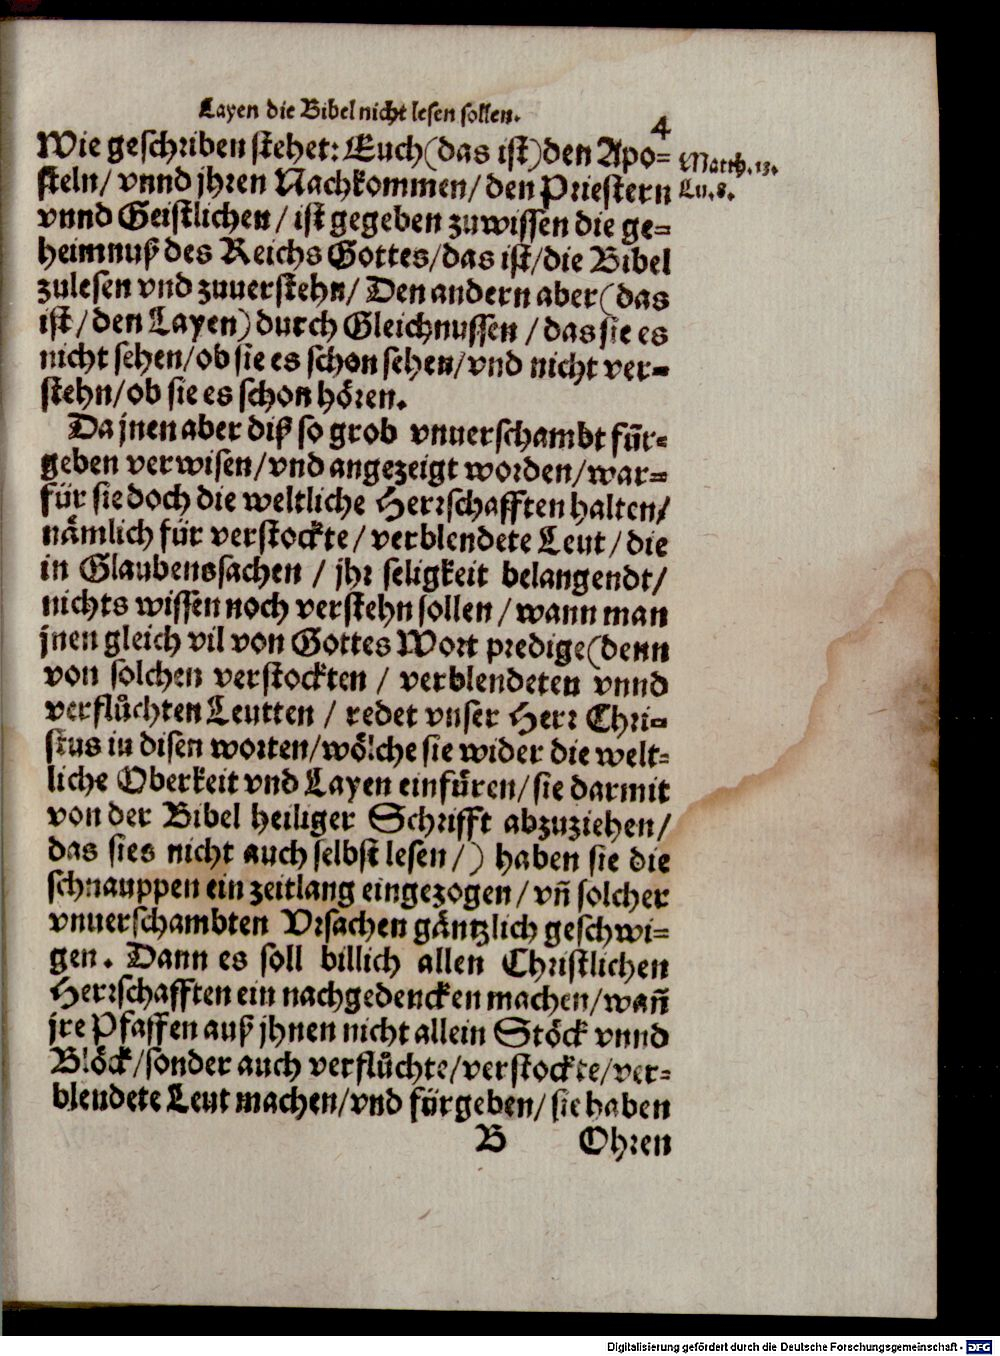 Layen die Bibel nicht lesen sollen.
4
Wie geschriben stehet: Euch (das ist) den Apo-
steln/ vnnd jhren Nachkommen/ den Priestern
vnnd Geistlichen/ ist gegeben zuwissen die ge-
heimnuß des Reichs Gottes/ das ist/ die Bibel
zulesen vnd zuuerstehn/ Den andern aber (das
ist/ den Layen) durch Gleichnussen/ das sie es
nicht sehen/ ob sie es schon sehen/ vnd nicht ver-
stehn/ ob sie es schon hören.
Matth. 13.
Lu. 8.
Da jnen aber diß so grob vnuerschambt für-
geben verwisen/ vnd angezeigt worden/ war-
für sie doch die weltliche Herrschafften halten/
nämlich für verstockte/ verblendete Leut/ die
in Glaubenssachen/ jhr seligkeit belangendt/
nichts wissen noch verstehn sollen/ wann man
jnen gleich vil von Gottes Wort predige (denn
von solchen verstockten/ verblendeten vnnd
verflůchten Leutten/ redet vnser Herr Chri-
stus in disen worten/ wölche sie wider die welt-
liche Oberkeit vnd Layen einfüren/ sie darmit
von der Bibel heiliger Schrifft abzuziehen/
das sies nicht auch selbst lesen/) haben sie die
schnauppen ein zeitlang eingezogen/ vñ solcher
vnuerschambten Vrsachen gäntzlich geschwi-
gen. Dann es soll billich allen Christlichen
Herrschafften ein nachgedencken machen/ wañ
jre Pfaffen auß jhnen nicht allein Stöck vnnd
Blöck/ sonder auch verflůchte/ verstockte/ ver-
blendete Leut machen/ vnd fürgeben/ sie haben
B Ohren
Digitalisierung gefördert durch die Deutsche Forschungsgemeinschaft - DFG